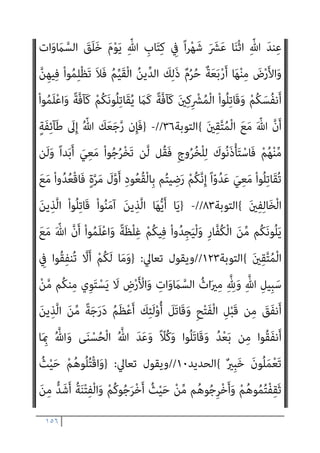 عِندَ اللّهِ اثْنَا عَشَرَ شَهْراً فِي كِتَابِ اللّهِ يَوْمَ خَلَقَ السَّمَاوَات
وَالأَرْضَ مِنْهَا أَرْبَعَةٌ حُرُمٌ ذَلِكَ الدِّينُ الْقَيِّمُ فَلاَ تَظْلِمُواْ فِيهِنَّ
أَنفُسَكُمْ وَقَاتِلُواْ الْمُشْرِكِينَ كَآفَّةً كَمَا يُقَاتِلُونَكُمْ كَآفَّةً وَاعْلَمُواْ
أَنَّ اللّهَ مَعَ الْمُتَّقِينَ }التوبة٣٦ //- {فَإِن رَّجَعَكَ اللّهُ إِلَى طَآئِفَةٍ
مِّنْهُمْ فَاسْتَأْذَنُوكَ لِلْخُرُوجِ فَقُل لَّن تَخْرُجُواْ مَعِيَ أَبَداً وَلَن
تُقَاتِلُواْ مَعِيَ عَدُوّاً إِنَّكُمْ رَضِيتُم بِالْقُعُودِ أَوَّلَ مَرَّةٍ فَاقْعُدُواْ مَعَ
الْخَالِفِينَ }التوبة٨٣ //- {يَا أَيُّهَا الَّذِينَ آمَنُواْ قَاتِلُواْ الَّذِينَ
يَلُونَكُم مِّنَ الْكُفَّارِ وَلْيَجِدُواْ فِيكُمْ غِلْظَةً وَاعْلَمُواْ أَنَّ اللّهَ مَعَ
الْمُتَّقِينَ }التوبة١٢٣ //ويقول تعالي: {وَمَا لَكُمْ أَلَّا تُنفِقُوا فِي
سَبِيلِ اللَّهِ وَلِلَّهِ مِيرَاثُ السَّمَاوَاتِ وَالْأَرْضِ لَا يَسْتَوِي مِنكُم مَّنْ
أَنفَقَ مِن قَبْلِ الْفَتْحِ وَقَاتَلَ أُوْلَئِكَ أَعْظَمُ دَرَجَةً مِّنَ الَّذِينَ
أَنفَقُوا مِن بَعْدُ وَقَاتَلُوا وَكُلّاً وَعَدَ اللَّهُ الْحُسْنَى وَاللَّهُ بِمَا
تَعْمَلُونَ خَبِيرٌ }الحديد١٠ //ويقول تعالي: {وَاقْتُلُوهُمْ حَيْثُ
ثَقِفْتُمُوهُمْ وَأَخْرِجُوهُم مِّنْ حَيْثُ أَخْرَجُوكُمْ وَالْفِتْنَةُ أَشَدُّ مِنَ
١٥٦